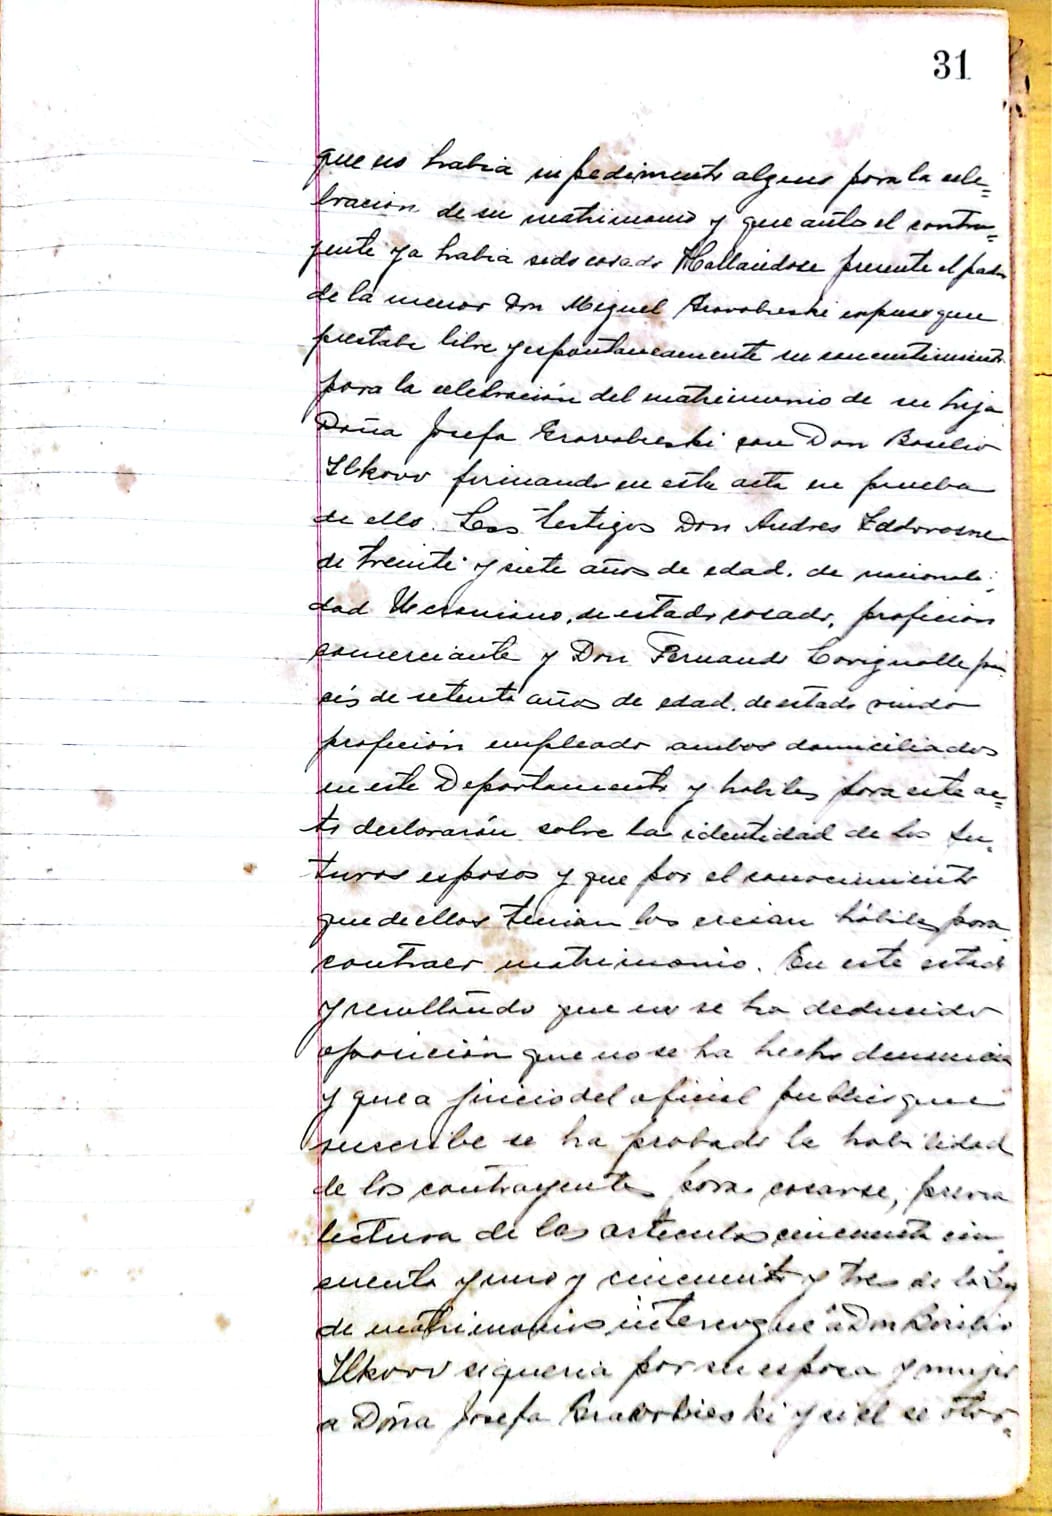 31
que no habia inpedimento alguno para la cele=
bracion de su matrimonio y que antes el contra=
yente ya habia sido casado Hallandose presente el padre
de la menor Don Miguel expuso que
prestaba libre y espontaneamente su consentimiento
para la celebración del matrimonio de su hija
Doña Josefa con Don Basilio
Ilkovv firmando en esta acta en prueba
de ello. Los testigos Don Andres
de treinta y siete años de edad. de nacionali=
dad Ucraniano, de estado casado, profesion
comerciante y Don Fernando
cés de setenta años de edad. de estado viudo
profesión empleado ambos domiciliados
en este Departamento y habiles para este ac=
to declararón sobre la identidad de los fu=
turos esposos y que por el conocimiento
que de ellos tenian los creian hábiles para
contraer matrimonio. En este estado
y resultando que no se ha deducido
oposición que no se ha hecho denuncia
y que a juicio del oficial publico que
suscribe se ha probado la habilidad
de los contrayentes para casarse, previa
lectura de los articulos cincuenta cin=
cuenta y uno y cincuenta y tres de la Ley
de matrimonios interrogué a Don Basilio
Ilkovv si queria por su esposa y mujer
a Doña Josefa y si el se otor=